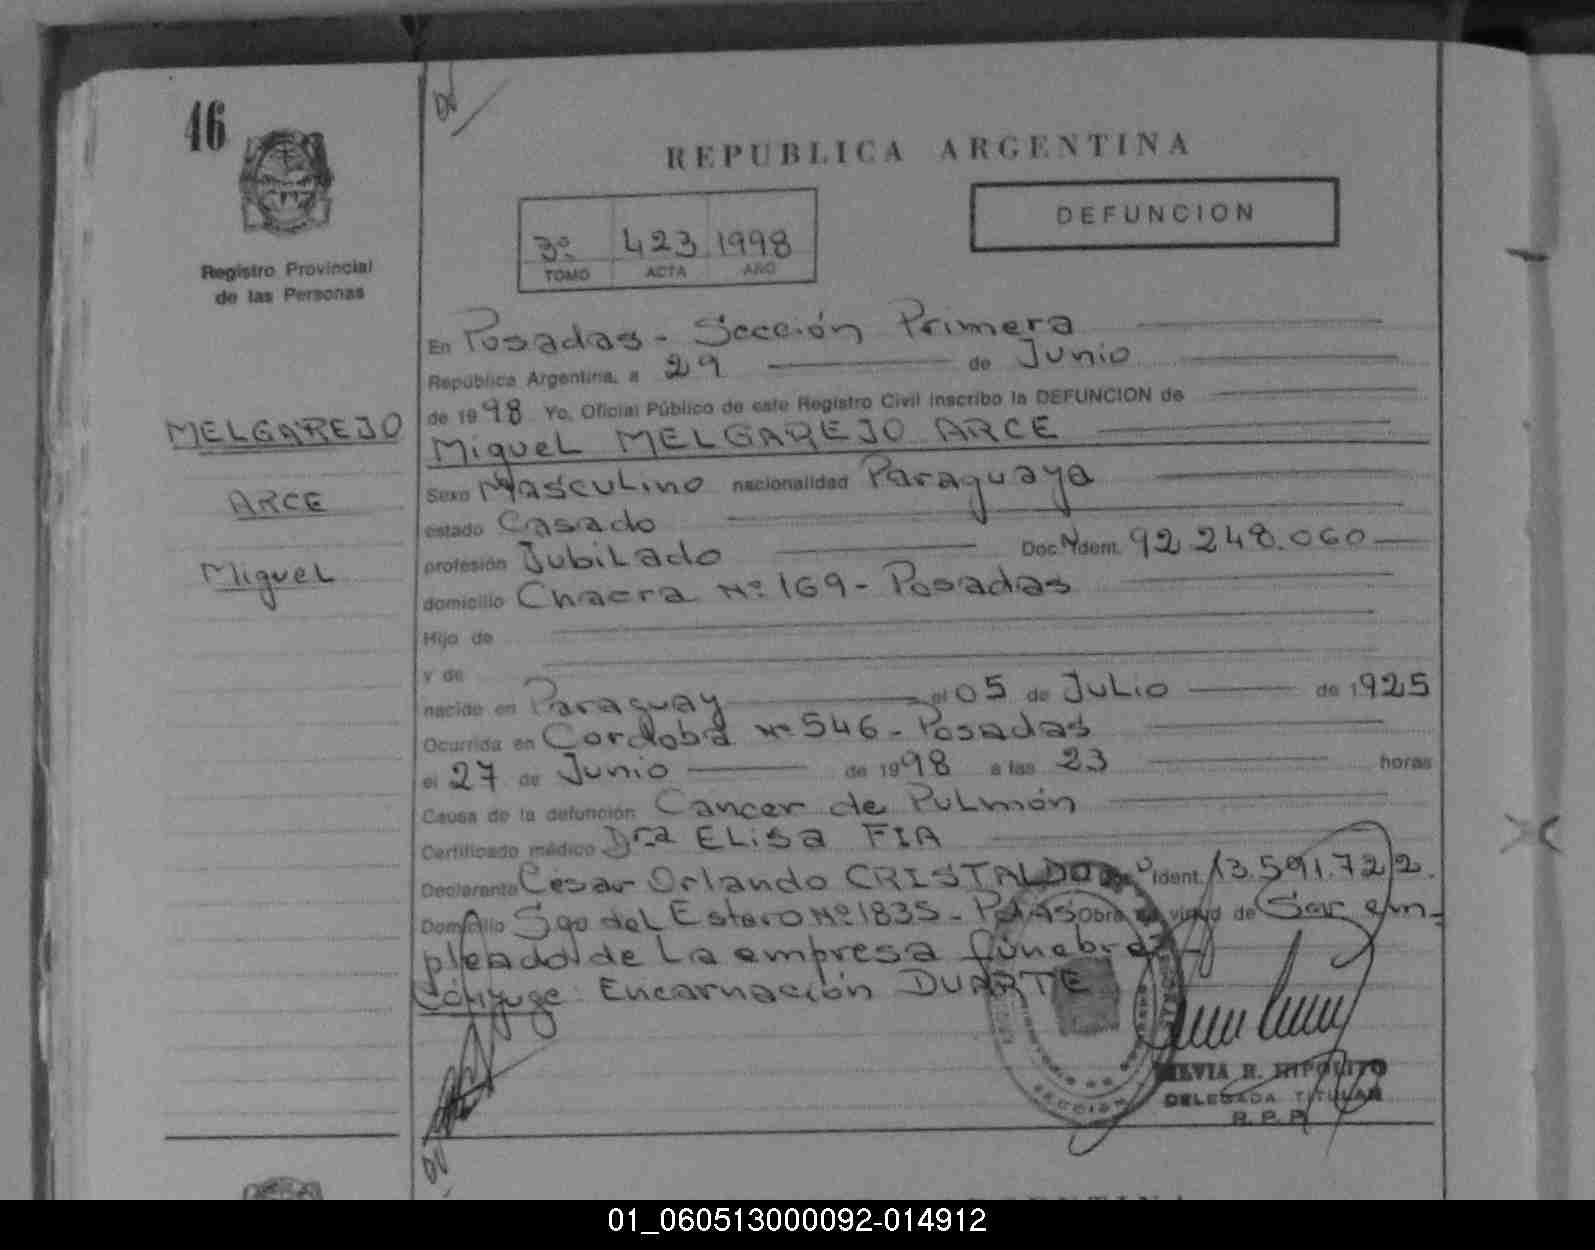 46
Registro Provincial
de las Personas
MELGAREJO
ARCE
Miguel
REPUBLICA ARGENTINA
DEFUNCION
3º 423 1998
TOMO ACTA AÑO
En Posadas - Sección Primera
República Argentina, a 29 de Junio
de 1998 Yo, Oficial Público de este Registro Civil inscribo la DEFUNCION de
Miguel MELGAREJO ARCE
Sexo Masculino nacionalidad Paraguaya
estado Casado
profesión Jubilado Doc. Ident. 92.248.060
domicilio Chacra Nº 169 - Posadas
Hijo de
y de
nacido en Paraguay el 05 de Julio de 1925
Ocurrida en Cordoba Nº 546 - Posadas
el 27 de Junio de 1998 a las 23 horas
Causa de la defunción Cancer de Pulmón
Certificado médico Dra ELisa FIA
Declarante César Orlando CRISTALDO Ident. 13.591.722.
Domicilio Sgo del Estero Nº 1835 - Pdas Obra en virtud de Ser em-
pleado de La empresa fúnebre
Cónyuge: Encarnación DUARTE
SECCION
SILVIA R. HIPOLITO
DELEGADA TITULAR
R. P. P.
01_060513000092-014912